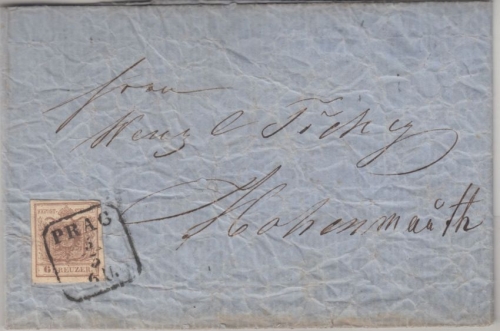 Herrn
Wenzl Tichy
Hohenmauth
PRAG
6 KREUZER